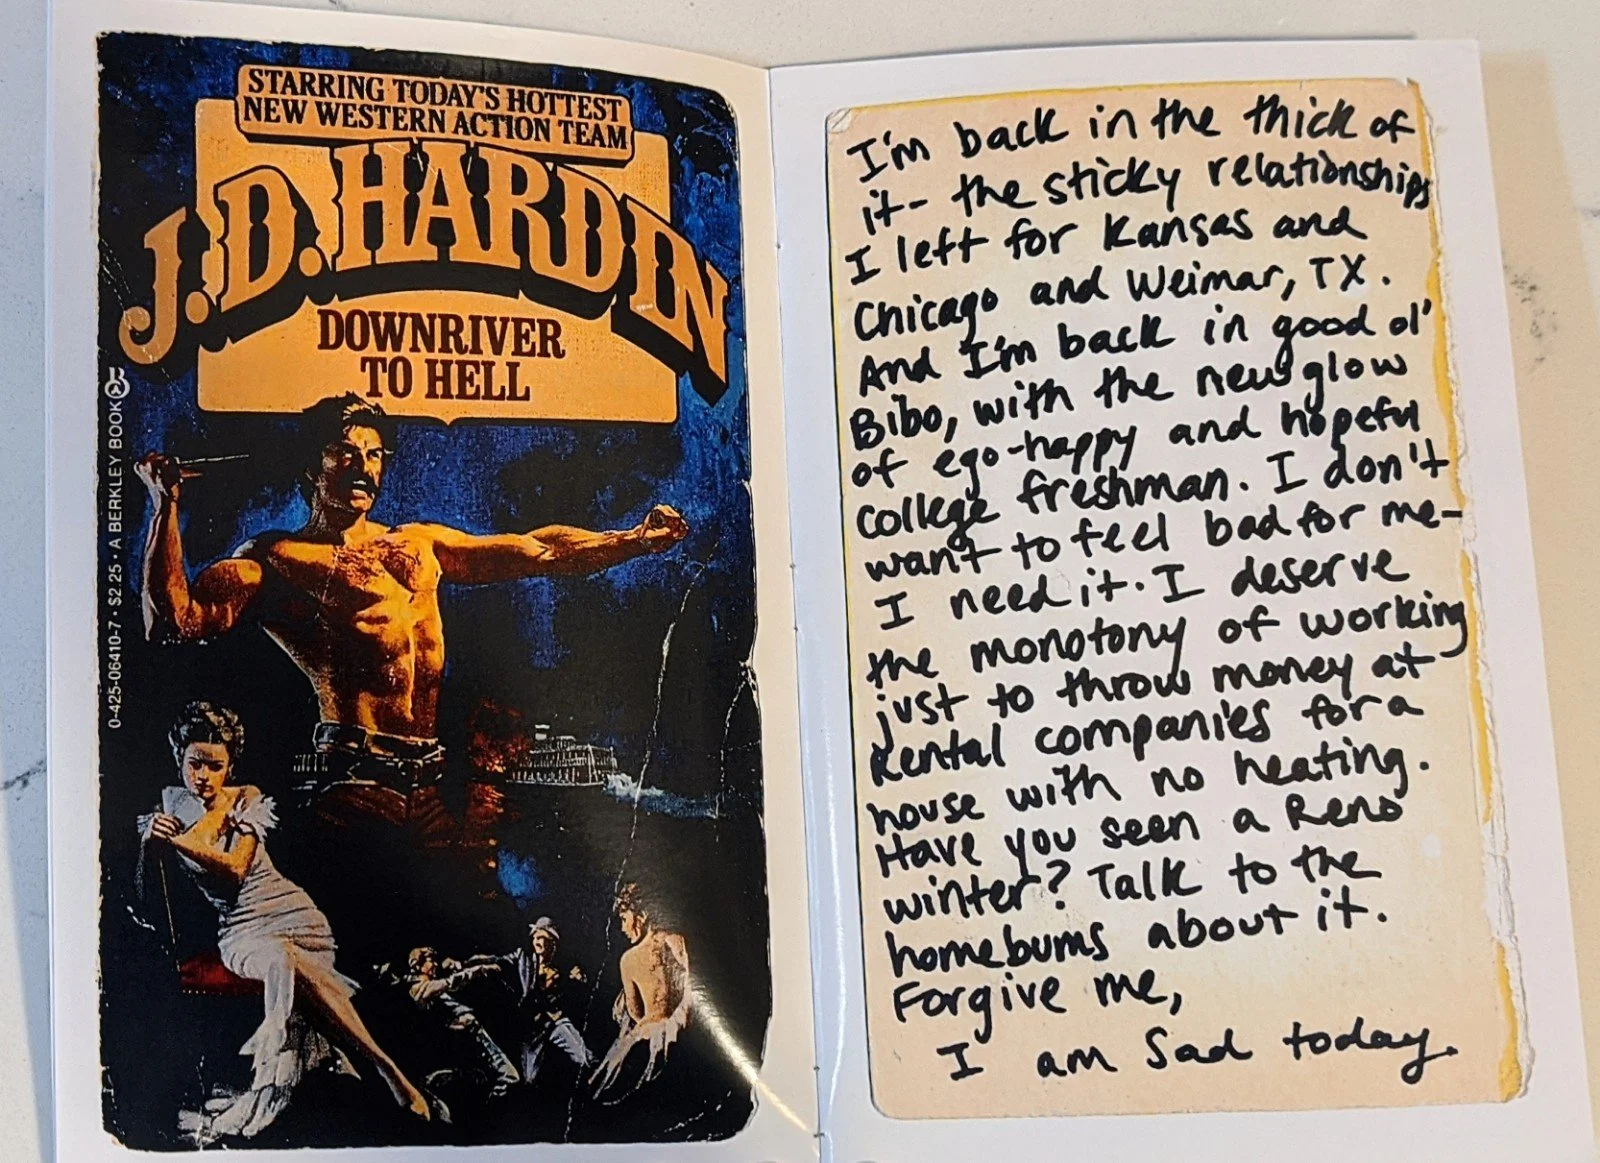 STARRING TODAY'S HOTTEST
NEW WESTERN ACTION TEAM
J.D. HARDIN
DOWNRIVER
TO HELL
0-425-06410-7 • $2.25 • A BERKLEY BOOK
I'm back in the thick of
it- the sticky relationships
I left for Kansas and
Chicago and Weimar, TX.
And I'm back in good ol'
Bibo, with the new glow
of ego-happy and hopeful
college freshman. I don't
want to feel bad for me-
I need it. I deserve
the monotony of working
just to throw money at
Rental companies for a
house with no heating.
Have you seen a Reno
winter? Talk to the
homebums about it.
Forgive me,
I am Sad today.